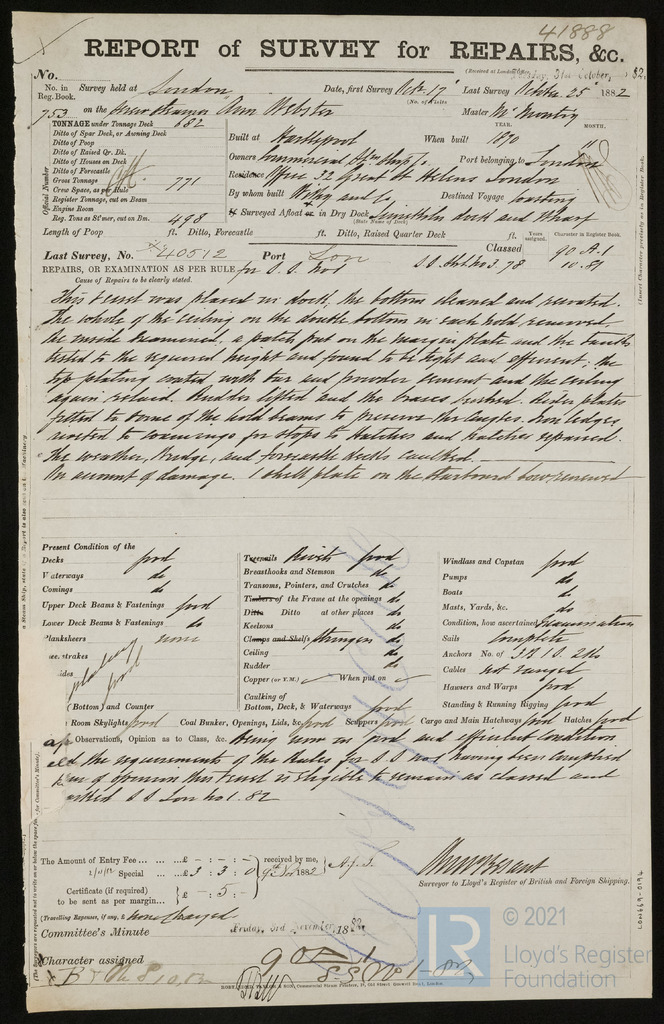 41888
REPORT of SURVEY for REPAIRS, &c.
(Received at London Office, Tuesday, 31st October, 1882
No.
No. in Reg. Book. Survey held at London Date, first Survey Octr. 17th Last Survey October 25th 1882
(No. of Visits
753 on the Screw Steamer Ann Webster Master
TONNAGE under Tonnage Deck 682
Ditto of Spar Deck, or Awning Deck
Ditto of Poop
Ditto of Raised Qr. Dk.
Ditto of Houses on Deck
Ditto of Forecastle
Gross Tonnage 771
Crew Space, as per Rule
Register Tonnage, cut on Beam
Engine Room
Reg. Tons as St'mer, cut on Bm. 498
Official Number
YEAR. MONTH.
Built at Hartlepool When built 1870 11
Owners Commercial Stm Shop Co. Port belonging to London
Residence Office 32 Great St Helens London
By whom built Withy and Co Destined Voyage Coasting
If Surveyed Afloat or in Dry Dock Limekiln dock and Wharf
(State Name of Dock.)
Length of Poop ft. Ditto, Forecastle ft. Ditto, Raised Quarter Deck ft.
Years assigned. Character in Register Book.
Last Survey, No. 40512 Port Lon Classed 90 A.1
REPAIRS, OR EXAMINATION AS PER RULE for S.S. No 1 S.S. No 3. 78 10.81
Cause of Repairs to be clearly stated.
This vessel was placed in dock, the bottom cleaned and recoated.
The whole of the ceiling on the double bottom in each hold removed.
the inside examined, a patch put on the margin plate and the tanks
tested to the required height and found to be tight and efficient; the
top plating coated with tar and powder cement and the ceiling
again relaid. Rudder lifted and the braces bushed. plates
fitted to some of the hold beams to preserve the angles. Iron ledges
riveted to coamings for stops to hatches and hatches repaired.
The weather, Bridge, and forecastle decks caulked.
On account of damage. 1 shell plate on the starboard bow renewed
Present Condition of the
Decks good
Waterways do
Comings do
Upper Deck Beams & Fastenings good
Lower Deck Beams & Fastenings do
Planksheers
plating
good
(Bottom) and Counter
Treenails Rivets good
Breasthooks and Stemson do
Transoms, Pointers, and Crutches do
Timbers of the Frame at the openings do
Ditto Ditto at other places do
Keelsons do
Clamps and Shelfs Stringers do
Ceiling do
Rudder do
Copper (or Y.M.) When put on
Caulking of Bottom, Deck, & Waterways good
Windlass and Capstan good
Pumps do
Boats do
Masts, Yards, &c. do
Condition, how ascertained Examination
Sails Complete
Anchors No. of 3B. 1S. 2Ks
Cables not ranged
Hawsers and Warps good
Standing & Running Rigging good
Room Skylights good Coal Bunker, Openings, Lids, &c. good Scuppers good Cargo and Main Hatchways good Hatches good
Observations, Opinion as to Class, &c. Being now in good and efficient condition
and the requirements of the Rules for S.S. No 1 having been complied
of opinion this vessel is eligible to remain as classed and
marked S.S. Lon No 1. 82
The Amount of Entry Fee ... ... £ - : - : - received by me,
Special ... £ 3 : 3 : 0 9th Nov 1882
Certificate (if required) to be sent as per margin... £ - : 5 : -
(Travelling Expenses, if any, £ none charged
Surveyor to Lloyd's Register of British and Foreign Shipping.
Committee's Minute Friday, 3rd November, 1882
Character assigned 90 A 1
SS No 1 - 82
LON669-0194
LR
© 2021
Lloyd's Register
Foundation